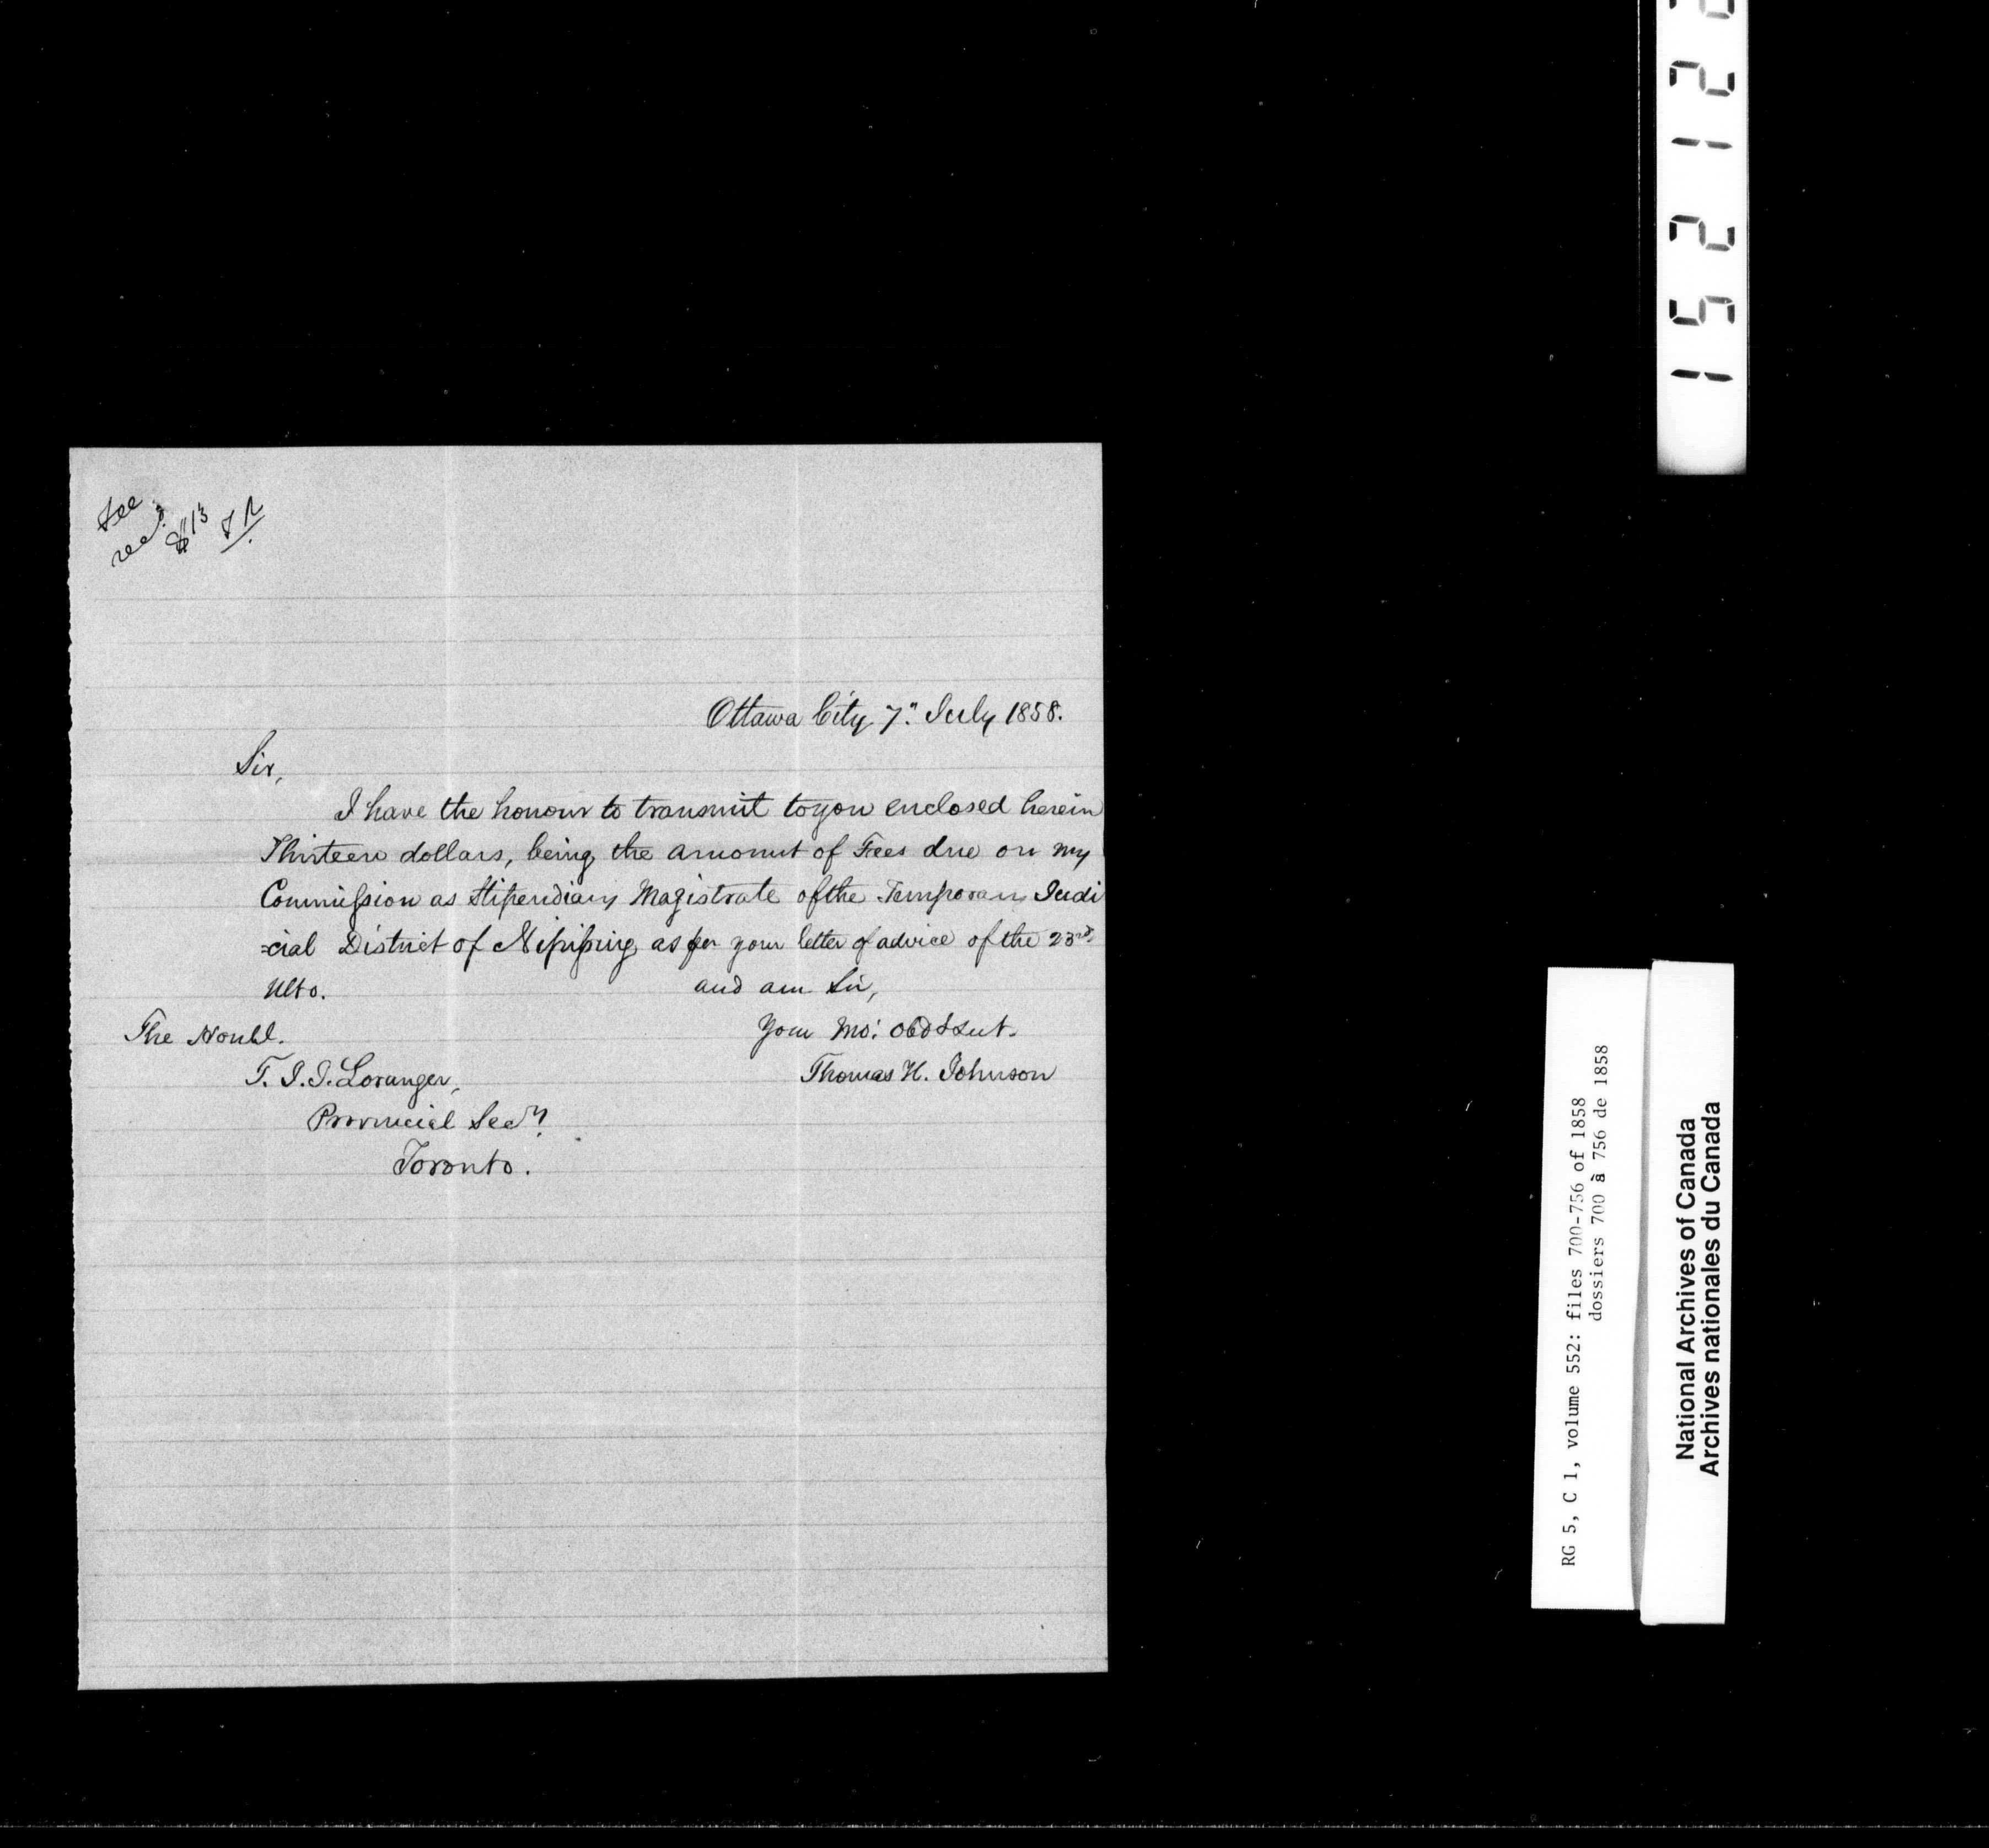 Fee
recd.
$13
Ottawa City 7" July 1858.
Sir,
I have the honour to transmit to you enclosed herein
Thirteen dollars, being the amount of Fees due on my
Commission as Stipendiary Magistrate of the Temporary Judi
=cial District of Nipissing as per your letter of advice of the 23rd
Ulto. and am Sir,
Your Mo: Obdt Svt.
Thomas H. Johnson
The Honbl.
T. J. J. Loranger,
Provincial Secy.
Toronto.
RG 5, C 1, volume 552: files 700-756 of 1858
dossiers 700 à 756 de 1858
National Archives of Canada
Archives nationales du Canada
152122